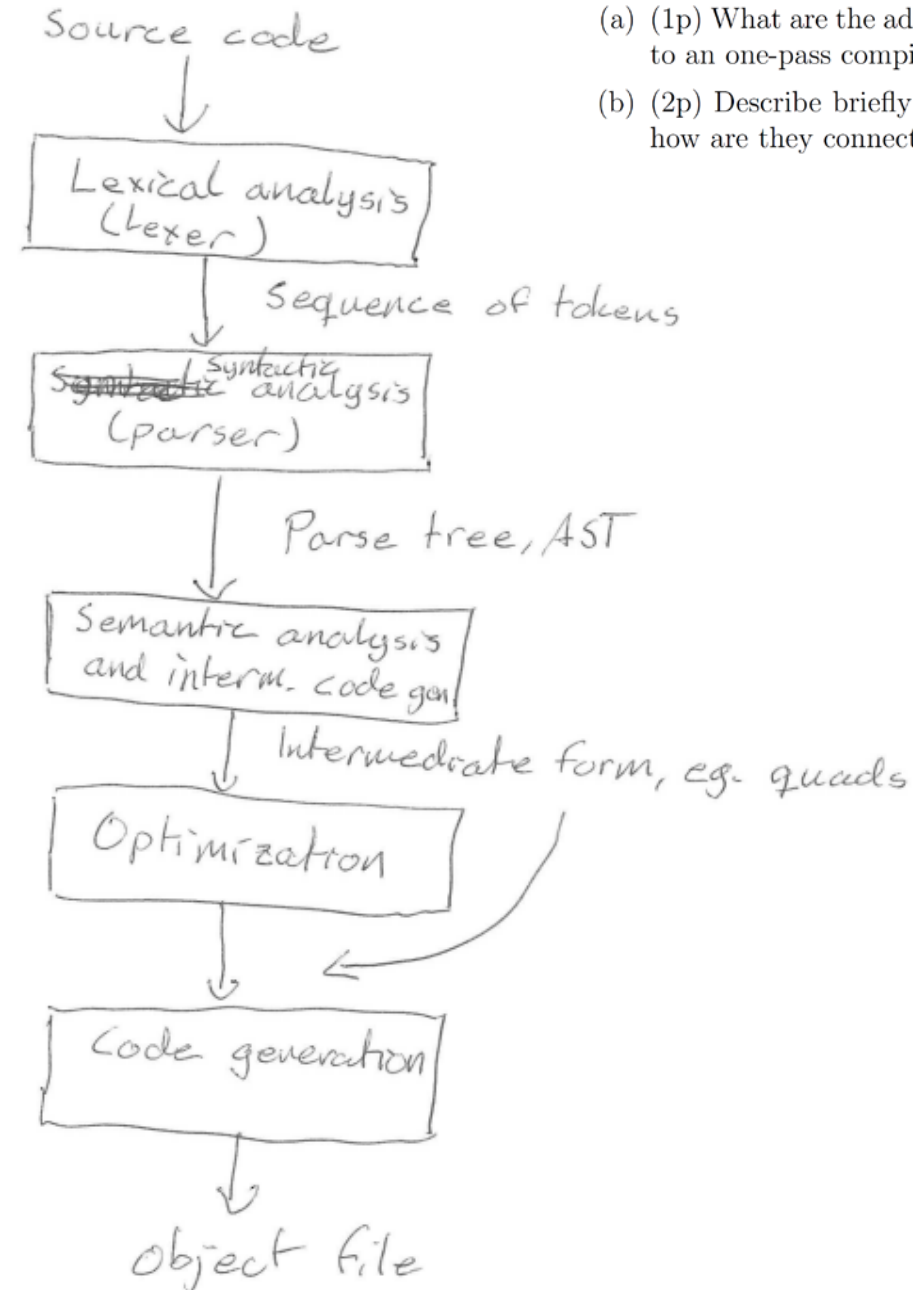 Source code
(a) (1p) What are the ad
to an one-pass compi
(b) (2p) Describe briefly
how are they connect
Lexical analysis
(Lexer)
Sequence of tokens
Syntactic
analysis
(parser)
Parse tree, AST
Semantic analysis
and interm. code gen.
Intermediate form, eg. quads
Optimization
Code generation
Object file